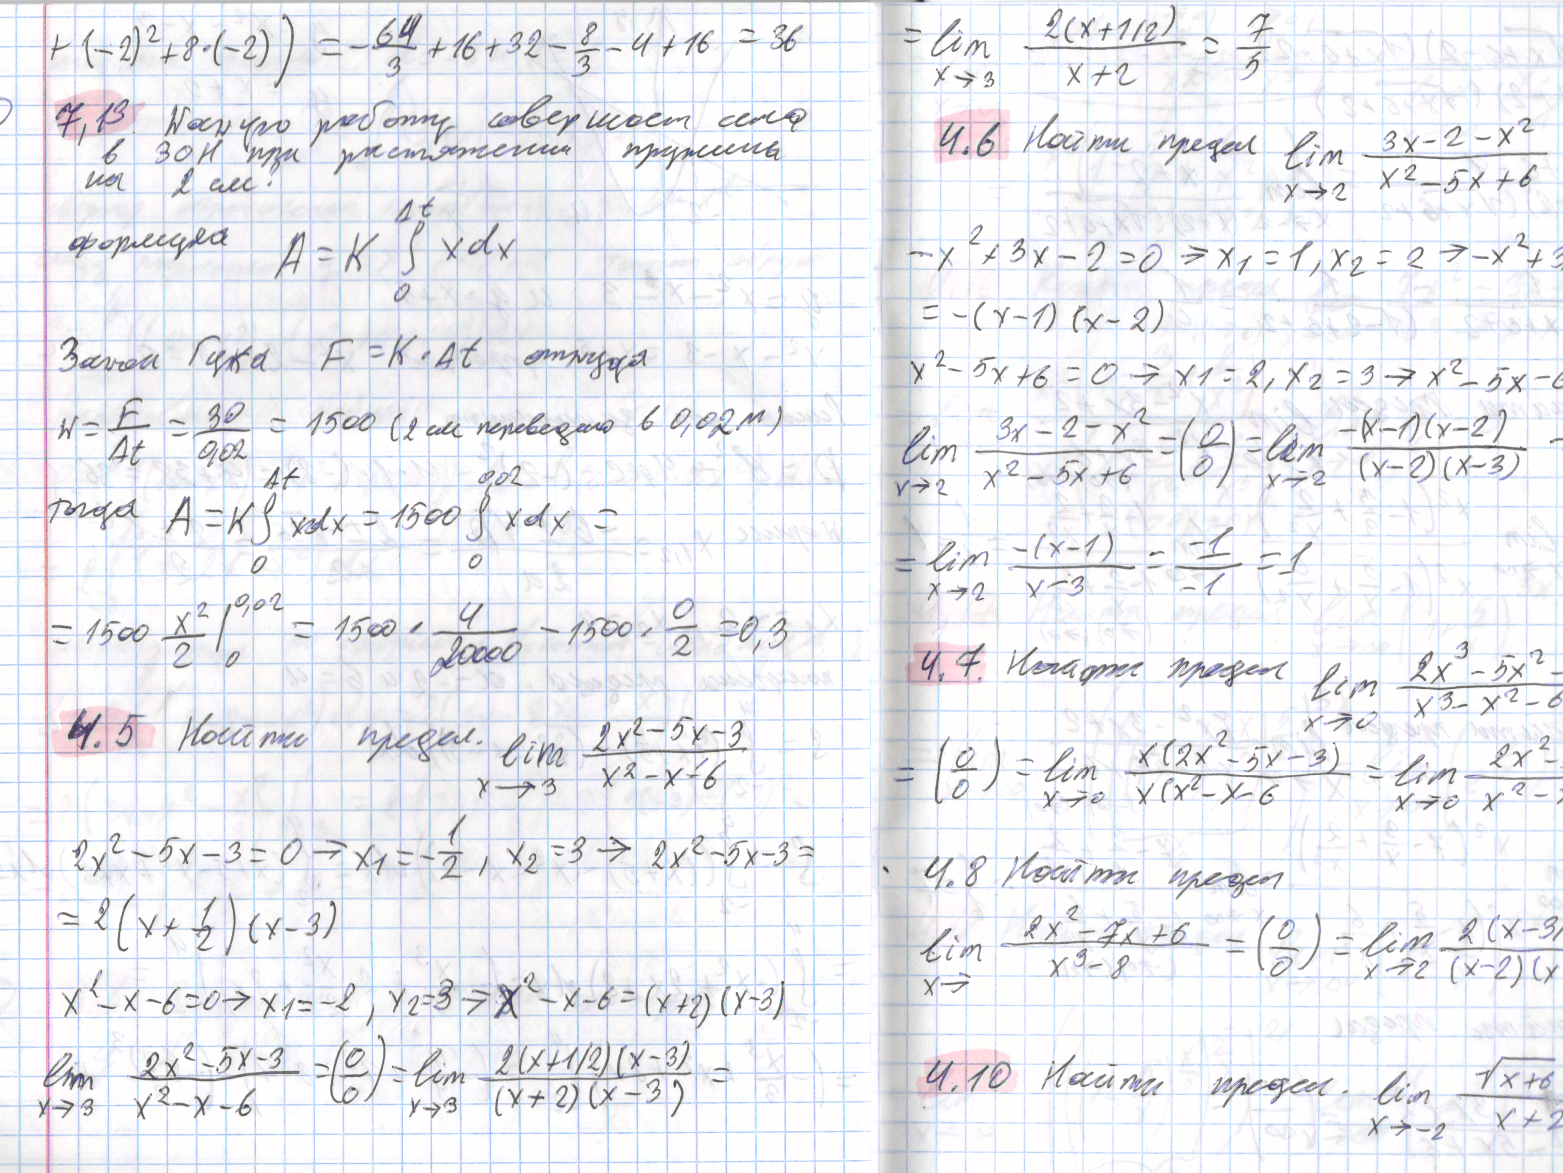 + (-2)² + 8·(-2)) = -64/3 + 16 + 32 - 8/3 - 4 + 16 = 36
7,13. Какую работу совершает сила
в 30Н при растяжении пружины
на 2 см.
формула A = K ∫₀^Δt x dx
Закон Гука F = K·Δt откуда
к = F/Δt = 30/0,02 = 1500 (2 см переведено в 0,02 м)
тогда A = K ∫₀^Δt x dx = 1500 ∫₀^0,02 x dx =
= 1500 x²/2 |₀^0,02 = 1500 · 4/20000 - 1500 · 0/2 = 0,3
4.5 Найти предел. lim x→3 (2x² - 5x - 3)/(x² - x - 6)
2x² - 5x - 3 = 0 → x₁ = -1/2, x₂ = 3 → 2x² - 5x - 3 =
= 2(x + 1/2)(x - 3)
x² - x - 6 = 0 → x₁ = -2, x₂ = 3 → x² - x - 6 = (x+2)(x-3)
lim x→3 (2x² - 5x - 3)/(x² - x - 6) = (0/0) = lim x→3 2(x+1/2)(x-3)/(x+2)(x-3) =
= lim x→3 2(x+1/2)/(x+2) = 7/5
4.6 Найти предел lim x→2 (3x - 2 - x²)/(x² - 5x + 6)
-x² + 3x - 2 = 0 → x₁ = 1, x₂ = 2 → -x² + 3
= -(x-1)(x-2)
x² - 5x + 6 = 0 → x1 = 2, x₂ = 3 → x² - 5x - 6
lim x→2 (3x - 2 - x²)/(x² - 5x + 6) = (0/0) = lim x→2 -(x-1)(x-2)/(x-2)(x-3)
= lim x→2 -(x-1)/(x-3) = -1/-1 = 1
4.7. Найти предел lim x→0 (2x³ - 5x² -)/(x³ - x² - 6
= (0/0) = lim x→0 x(2x² - 5x - 3)/x(x² - x - 6 = lim x→0 2x² -/x² -
4.8 Найти предел
lim x→ (2x² - 7x + 6)/(x³ - 8) = (0/0) = lim x→2 2(x-3/(x-2)(x
4.10 Найти предел. lim x→-2 √x+6/x+2